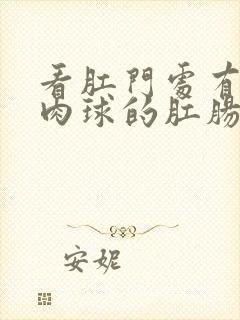 看肛門處有
肉球的肛腸
安妮